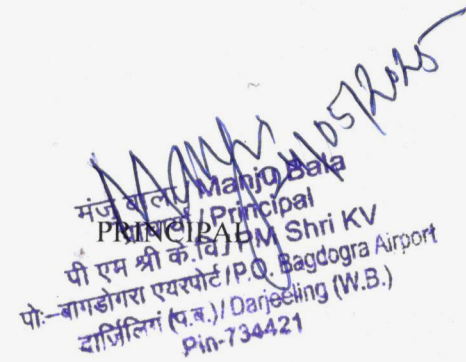 Manju
21/05/2025
मंजू बाला / Manju Bala
प्राचार्या / Principal
PRINCIPAL
पी एम श्री के.वि./ PM Shri KV
पो:–बागडोगरा एयरपोर्ट / P.O. Bagdogra Airport
दार्जिलिगं (प.ब.)/ Darjeeling (W.B.)
Pin-734421